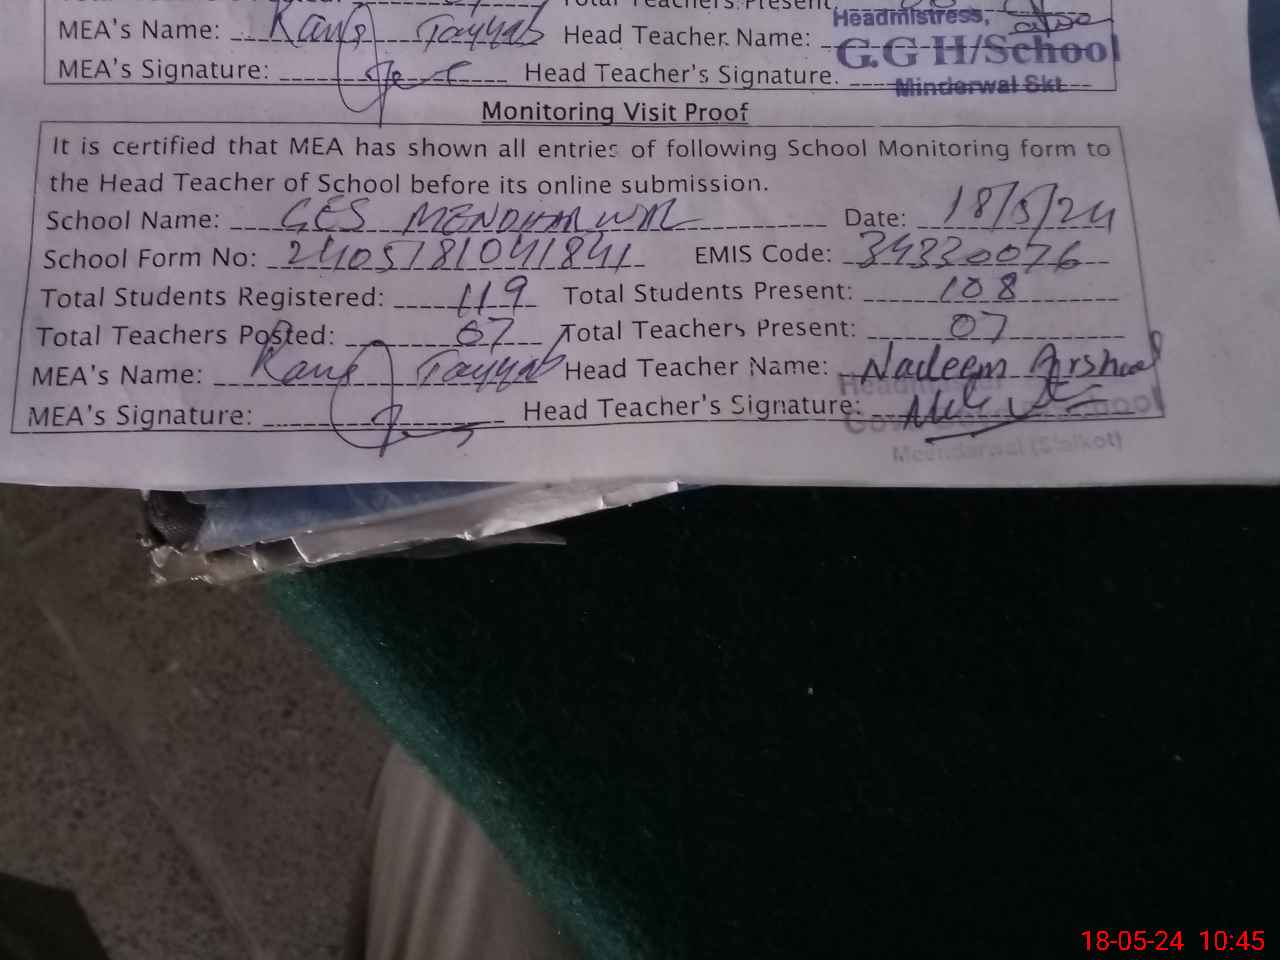 Total Teachers Present
MEA's Name: Rana Tayyab Head Teacher Name: Headmistress,
G.G H/School
MEA's Signature: Head Teacher's Signature. Minderwal Skt
Monitoring Visit Proof
It is certified that MEA has shown all entries of following School Monitoring form to
the Head Teacher of School before its online submission.
School Name: GES MENDHARWAL Date: 18/5/24
School Form No: 2405181041841 EMIS Code: 34330076
Total Students Registered: 119 Total Students Present: 108
Total Teachers Posted: 07 Total Teachers Present: 07
MEA's Name: Rana Tayyab Head Teacher Name: Nadeem Arshad
MEA's Signature: Head Teacher's Signature:
Meenderwal (Sialkot)
18-05-24 10:45